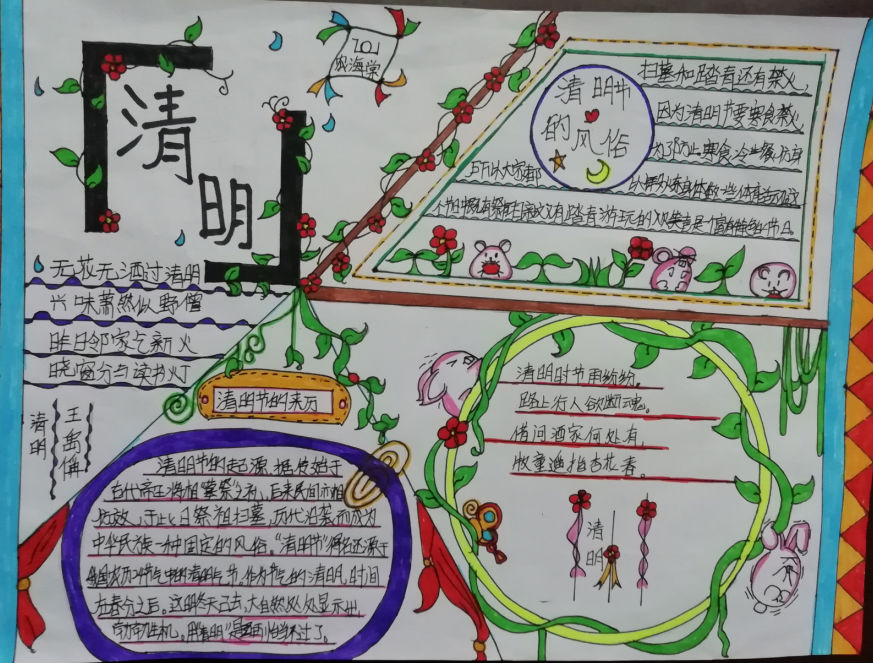 清
明
701
队海棠
无花无酒过清明
兴味萧然似野僧
昨日邻家乞新火
晓窗分与读书灯
王禹偁
清明
清明节
的风俗
扫墓和踏青还有禁火,
因为清明节要寒食禁火,
为了防止寒食冷餐伤身
所以大家都
以锻炼身体
个节日中既有祭扫
又有踏青游玩的欢笑
是一个富有特色的节日
清明节的来历
清明节的起源,据传始于
古代帝王将相"墓祭"之礼,后来民间亦相
仿效,于此日祭祖扫墓,历代沿袭而成为
中华民族一种固定的风俗。"清明节"得名还源于
我国农历24节气中的清明节。作为节气的清明,时间
在春分之后。这明冬天已去,大自然处处显示出
勃勃生机。用"清明"是再恰当不过了。
清明时节雨纷纷。
路上行人欲断魂。
借问酒家何处有,
牧童遥指杏花春。
清
明